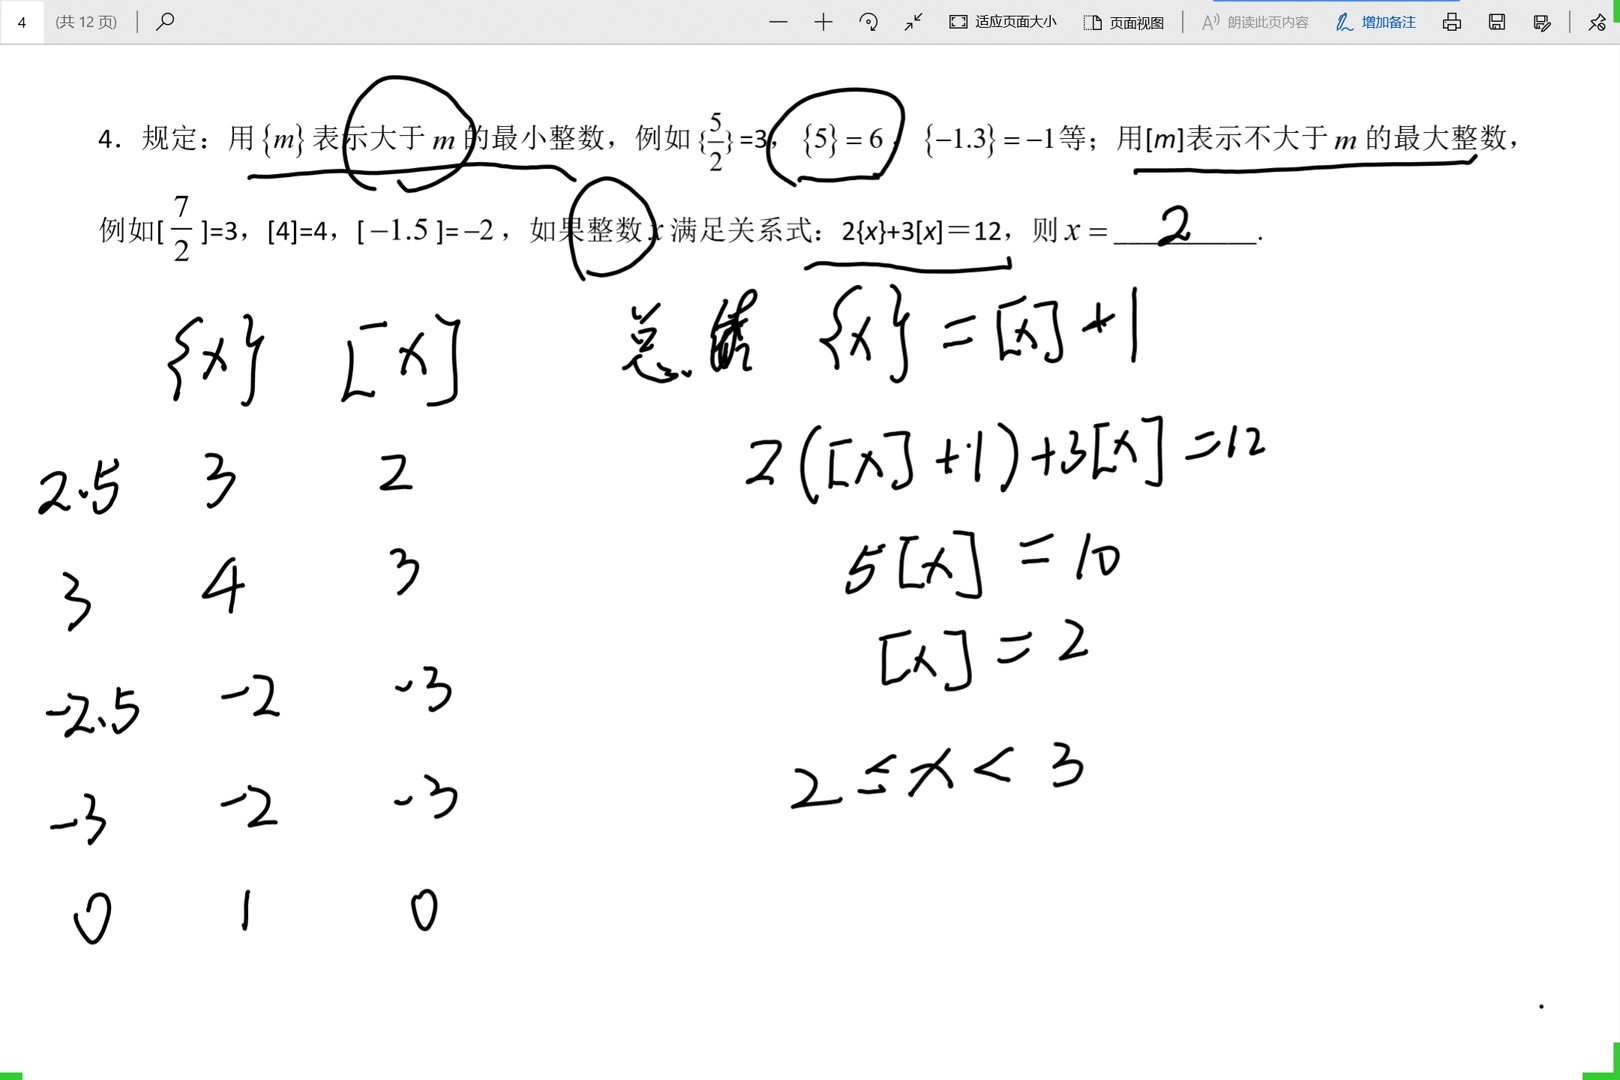 4 (共 12 页) 适应页面大小 页面视图 朗读此页内容 增加备注
4. 规定：用{m}表示大于 m 的最小整数，例如{5/2}=3，{5}=6，{−1.3}=−1等；用[m]表示不大于 m 的最大整数，
例如[7/2]=3，[4]=4，[−1.5]=−2，如果整数 x 满足关系式：2{x}+3[x]＝12，则 x = 2.
{x} [x]
总结 {x} = [x] + 1
2([x]+1)+3[x]=12
2.5 3 2
5[x] = 10
3 4 3
[x] = 2
-2.5 -2 -3
2 ≤ x < 3
-3 -2 -3
0 1 0